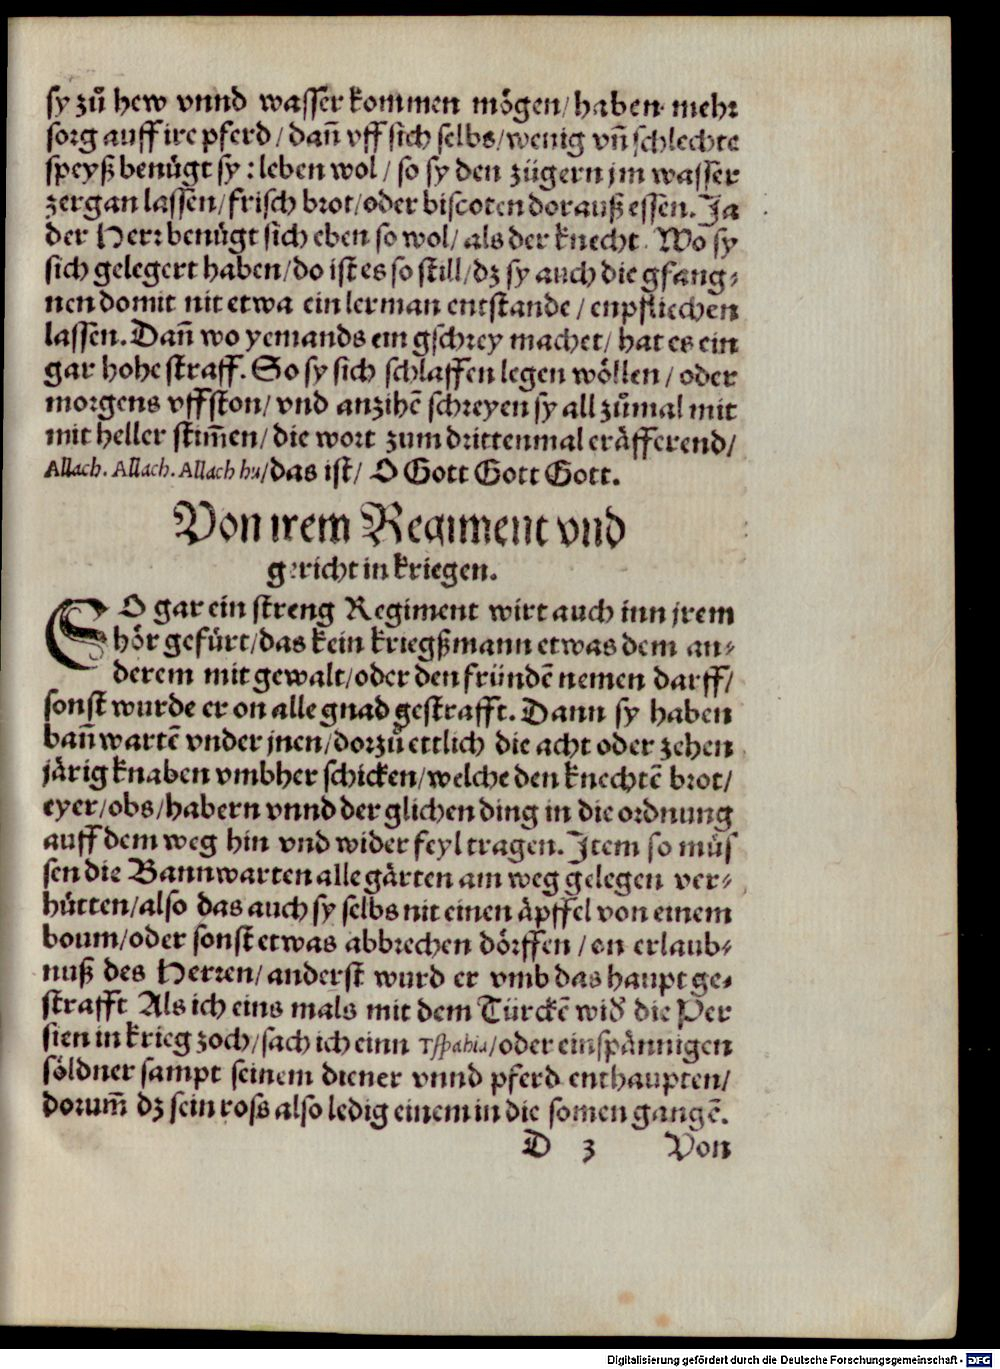 sy zů hew vnnd wasser kommen mögen/haben mehr
sorg auff ire pferd/dañ vff sich selbs/wenig vñ schlechte
speyß benügt sy: leben wol/so sy den zügern im wasser
zergan lassen/frisch brot/oder biscoten dorauß essen. Ja
der Herr benügt sich eben so wol/als der knecht. Wo sy
sich gelegert haben/do ist es so still/dz sy auch die gfang-
nen domit nit etwa ein lerman entstande/enpfliechen
lassen. Dañ wo yemands ein gschrey machet/hat es ein
gar hohe straff. So sy sich schlaffen legen wöllen/oder
morgens vffston/vnd anzihē schreyen sy all zůmal mit
mit heller stim̃en/die wort zum drittenmal eräfferend/
Allach. Allach. Allach hu/das ist/O Gott Gott Gott.
Von irem Regiment vnd
gericht in kriegen.
SO gar ein streng Regiment wirt auch inn jrem
hör gefürt/das kein kriegßmann etwas dem an-
derem mit gewalt/oder den fründē nemen darff/
sonst wurde er on alle gnad gestrafft. Dann sy haben
bañwartē vnder jnen/dorzů ettlich die acht oder zehen
järig knaben vmbher schicken/welche den knechtē brot/
eyer/obs/habern vnnd der glichen ding in die ordnung
auff dem weg hin vnd wider feyl tragen. Item so müs
sen die Bannwarten alle gärten am weg gelegen ver-
hütten/also das auch sy selbs nit einen äpffel von einem
boum/oder sonst etwas abbrechen dörffen/on erlaub-
nuß des Herren/anderst wurd er vmb das haupt ge-
strafft Als ich eins mals mit dem Türckē wid̕ die Per
sien in krieg zoch/sach ich einn Tspahia/oder einspännigen
söldner sampt seinem diener vnnd pferd enthaupten/
dorum̃ dz sein ross also ledig einem in die somen gangē.
D 3 Von
Digitalisierung gefördert durch die Deutsche Forschungsgemeinschaft - DFG